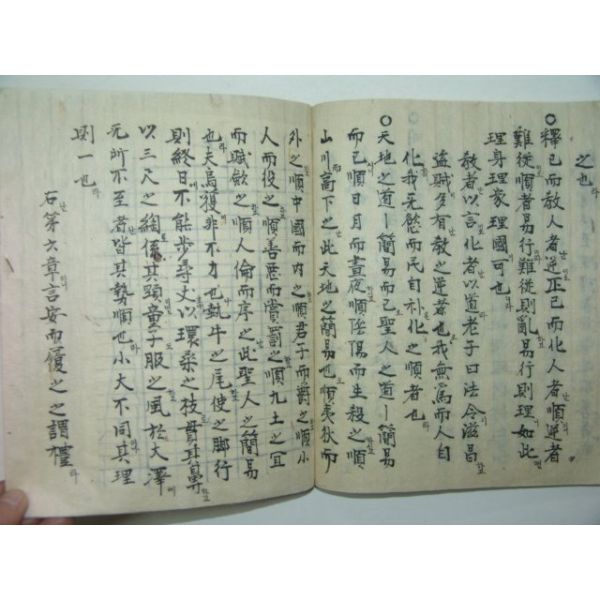 之也
○釋已而敎人者逆正已而化人者順逆者
難從順者易行難從則亂易行則理如此
理身理家理國可也
敎者以言化者以道老子曰法令滋昌
盜賊多有敎之逆者也我無爲而人自
化我无慾而民自朴化之順者也
○天地之道ㅣ簡易而已聖人之道ㅣ簡易
而已順日月而晝夜順陰陽而生殺之順
山川高下之此天地之簡易也順夷狄而
外之順中國而內之順君子而爵之順小
人而役之順善惡而賞罰之順九土之宜
而賦斂之順人倫而序之此聖人之簡易
也夫烏獲非不力也執牛之尾使之脚行
則終日不能步尋丈以環桑之枝貫其鼻
以三尺之綯係其頸童子服之風於大澤
无所不至者皆其勢順也小大不同其理
則一也
右第六章言安而履之之謂禮